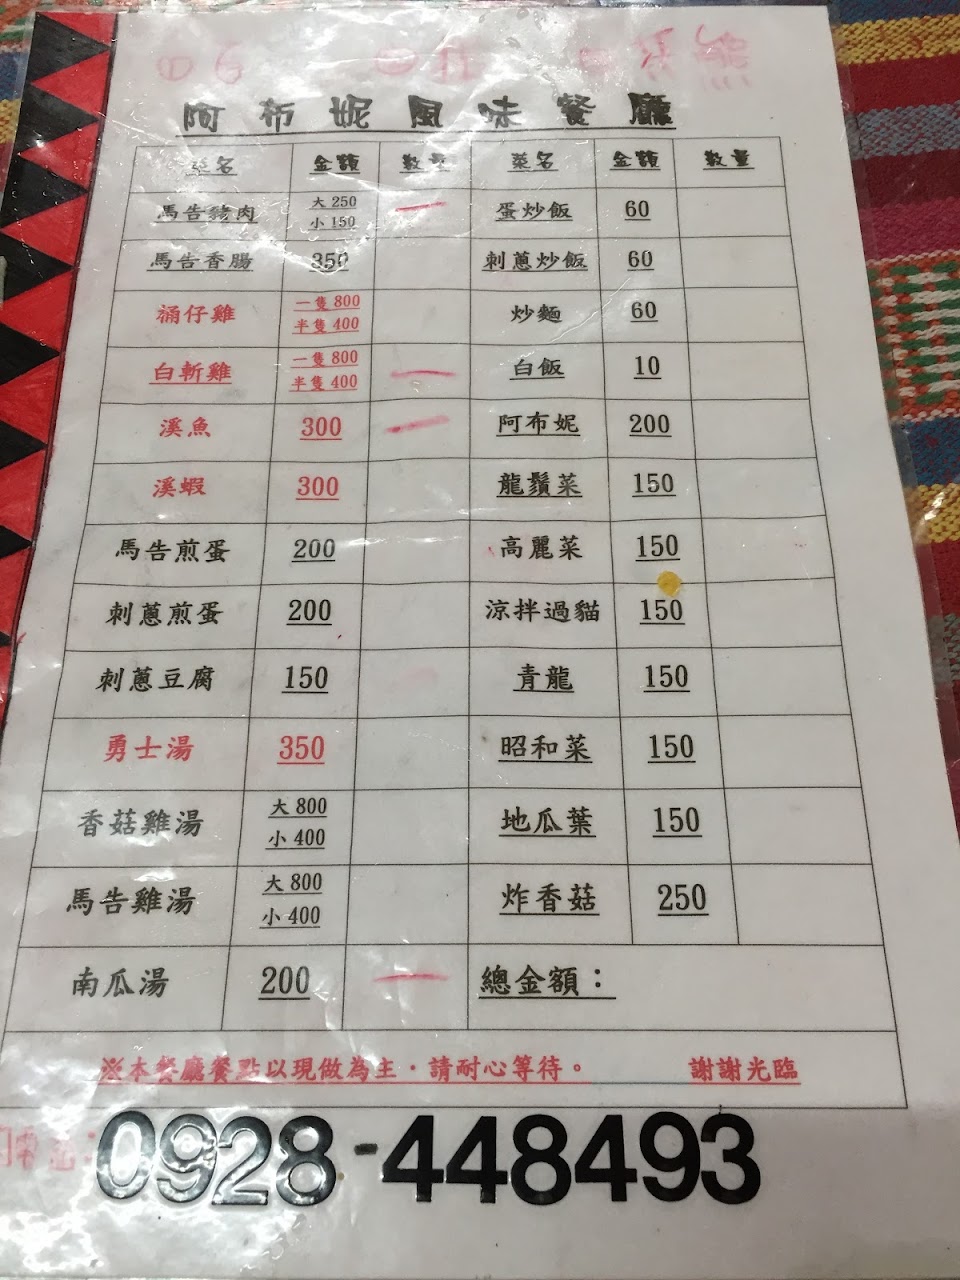 阿布妮風味餐廳
菜名 金額 數量 菜名 金額 數量
馬告豬肉 大 250 小 150 蛋炒飯 60
馬告香腸 350 刺蔥炒飯 60
桶仔雞 一隻 800 半隻 400 炒麵 60
白斬雞 一隻 800 半隻 400 白飯 10
溪魚 300 阿布妮 200
溪蝦 300 龍鬚菜 150
馬告煎蛋 200 高麗菜 150
刺蔥煎蛋 200 涼拌過貓 150
刺蔥豆腐 150 青龍 150
勇士湯 350 昭和菜 150
香菇雞湯 大 800 小 400 地瓜葉 150
馬告雞湯 大 800 小 400 炸香菇 250
南瓜湯 200 總金額：
※本餐廳餐點以現做為主．請耐心等待。 謝謝光臨
0928-448493